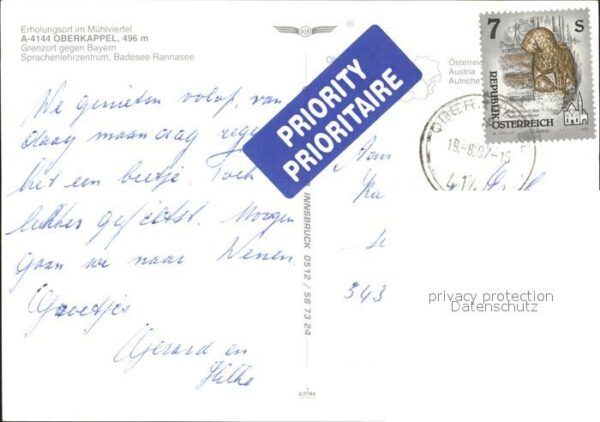 Erholungsort im Mühlviertel
A-4144 OBERKAPPEL, 496 m
Grenzort gegen Bayern
Sprachenlehrzentrum, Badesee Rannasee
We genieten volop, van
daag maandag rege
het een beetje. Toch
lekker gefietst. Morgen
gaan we naar Wenen
Groetjes
Gerard en
Hilke
PRIORITY
PRIORITAIRE
INNSBRUCK 0512 / 58 73 24
ALPINA
Österreich
Austria
Autriche
7 S
REPUBLIK
ÖSTERREICH
OBER
19.-8.97-16
41
343
privacy protection
Datenschutz